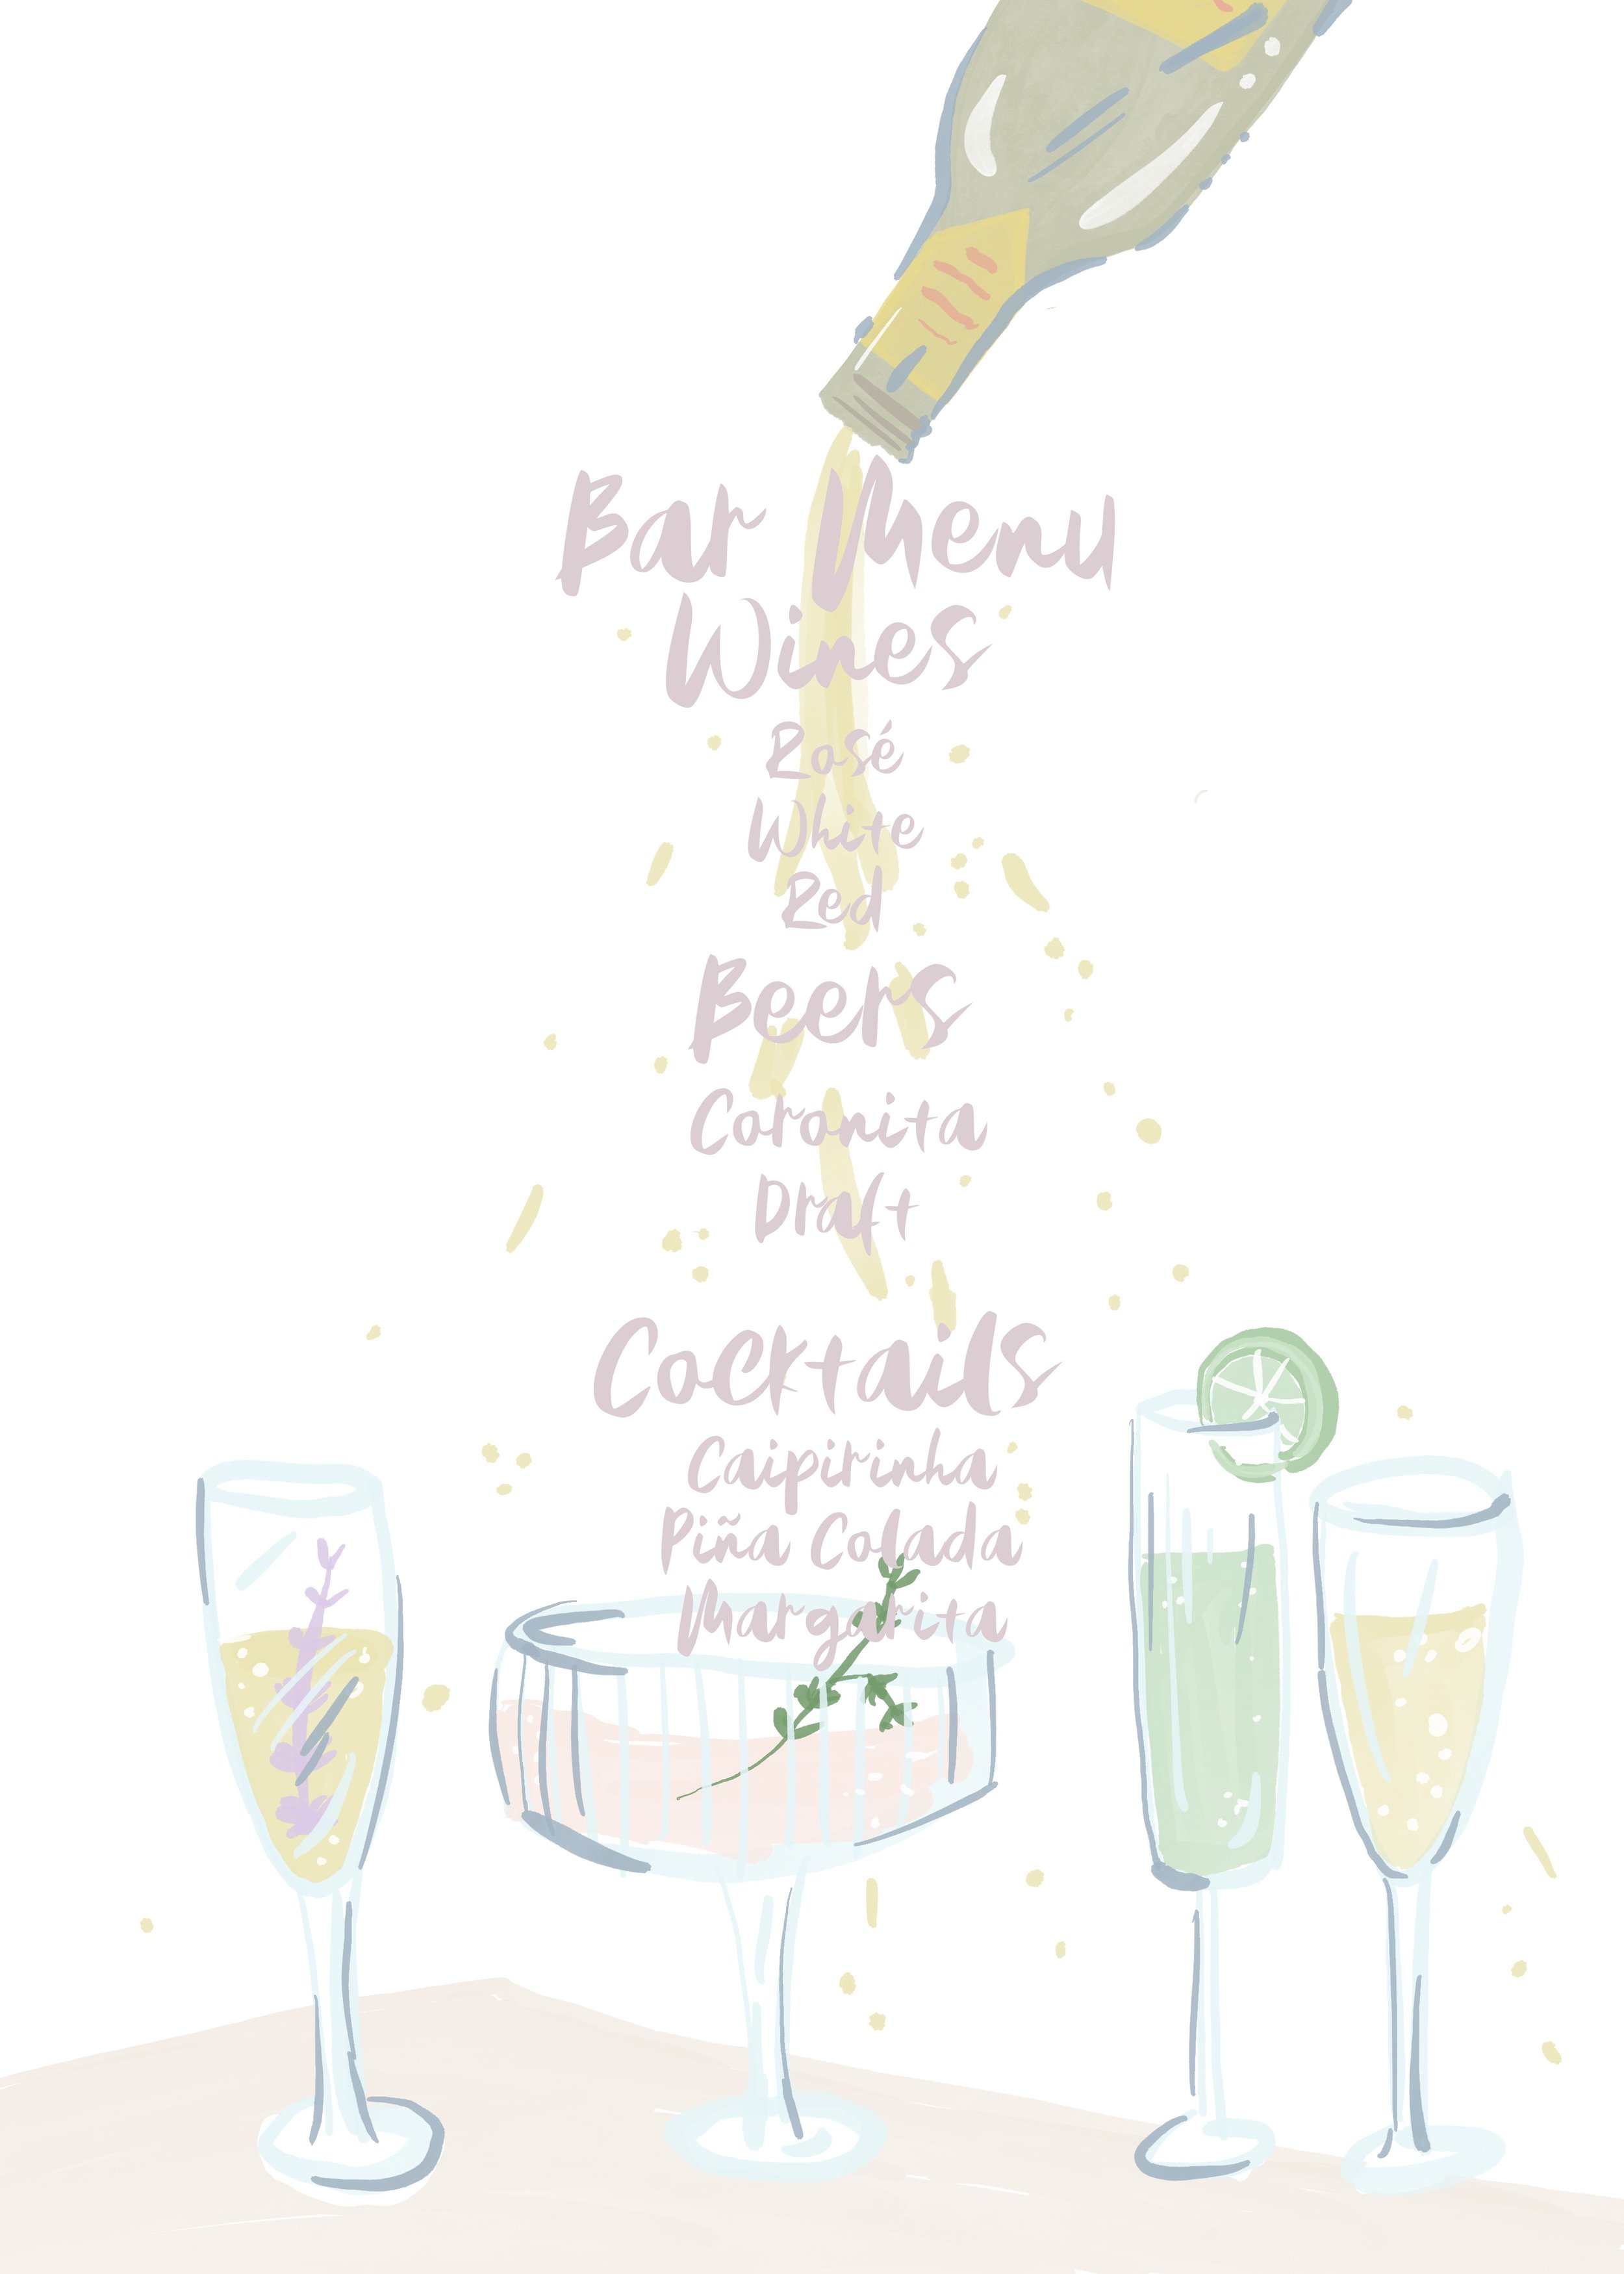 Bar Menu
Wines
Rosé
White
Red
Beers
Coronita
Draft
Cocktails
Caipirinha
Piña Colada
Margarita